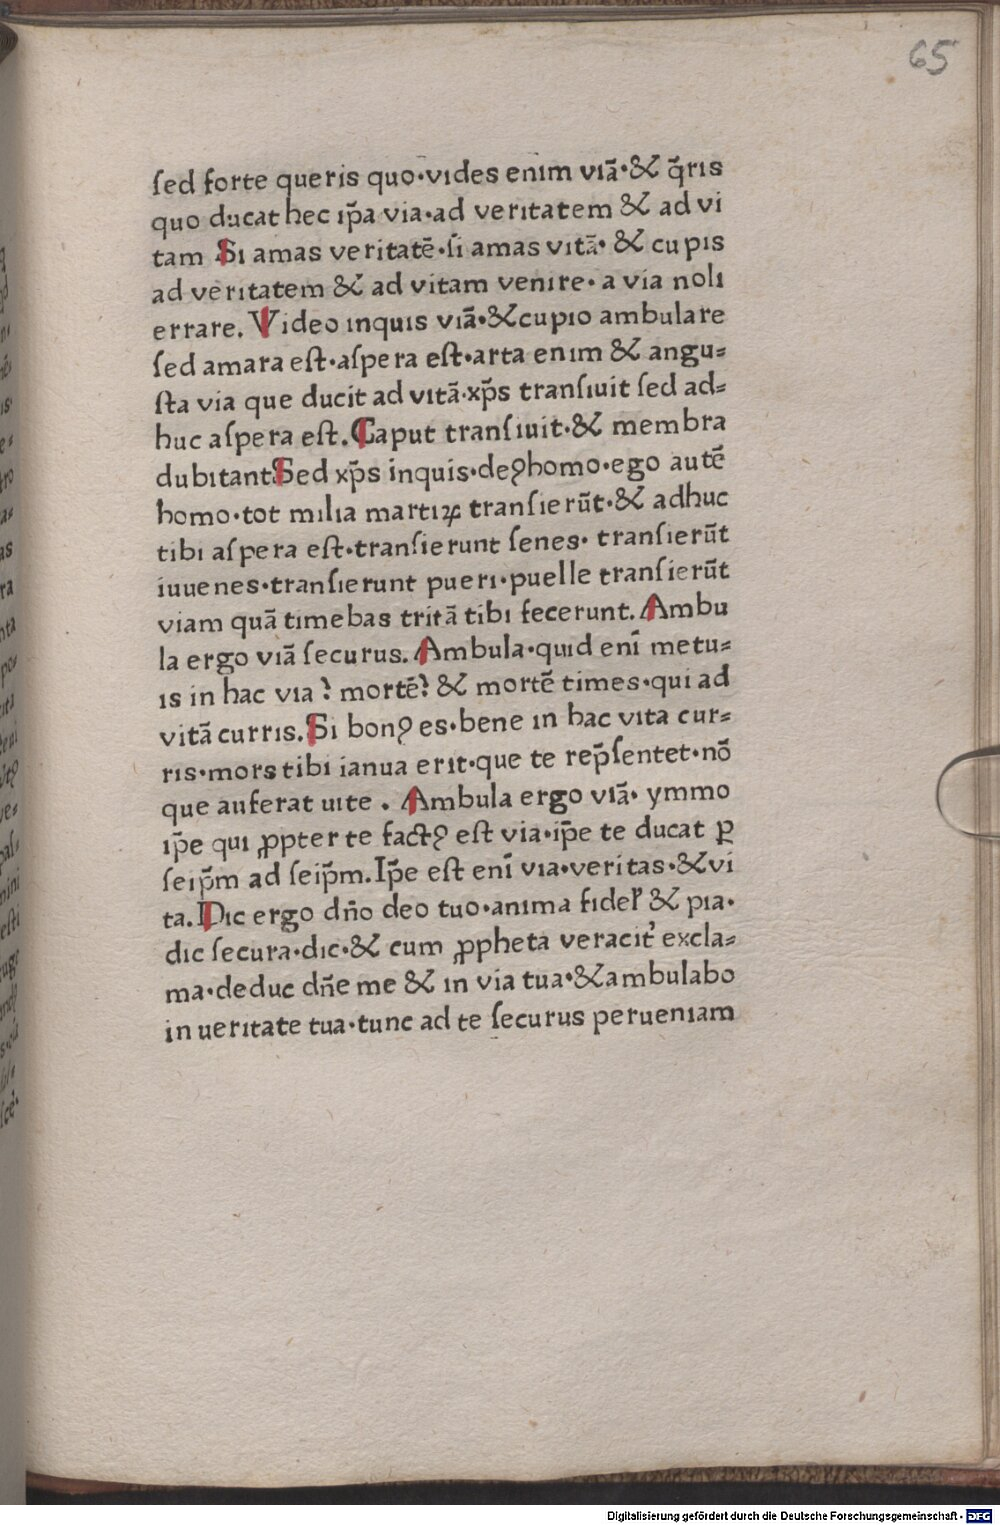 65
ſed forte queris quo·vides enim viã·& q̃ris
quo ducat hec ip̃a via·ad veritatem & ad vi
tam Si amas veritatẽ·ſi amas vitã· & cupis
ad veritatem & ad vitam venire· a via noli
errare. Video inquis viã·&cupio ambulare
ſed amara eſt·aſpera eſt·arta enim & angu=
ſta via que ducit ad vitã·xp̃s tranſiuit ſed ad=
huc aſpera eſt. Caput tranſiuit·& membra
dubitant Sed xp̃s inquis·deꝰhomo·ego autẽ
homo·tot milia martiꝝ tranſierũt·& adhuc
tibi aſpera eſt·tranſierunt ſenes· tranſierũt
iuuenes·tranſierunt pueri·puelle tranſierũt
viam quã timebas tritã tibi fecerunt. Ambu
la ergo viã ſecurus. Ambula·quid enĩ metu=
is in hac via? mortẽ? & mortẽ times·qui ad
vitã curris. Si bonꝰ es·bene in hac vita cur=
ris·mors tibi ianua erit·que te rep̃ſentet·nõ
que auferat uite . Ambula ergo viã· ymmo
ip̃e qui ꝓpter te factꝰ eſt via·ip̃e te ducat ꝑ
ſeip̃m ad ſeip̃m. Ip̃e eſt enĩ via·veritas·&vi
ta. Dic ergo dño deo tuo·anima fidel̛ & pia·
dic ſecura·dic·& cum ꝓpheta veracit̛ excla=
ma·deduc dñe me & in via tua·&ambulabo
in ueritate tua·tunc ad te ſecurus perueniam
Digitalisierung gefördert durch die Deutsche Forschungsgemeinschaft - DFG